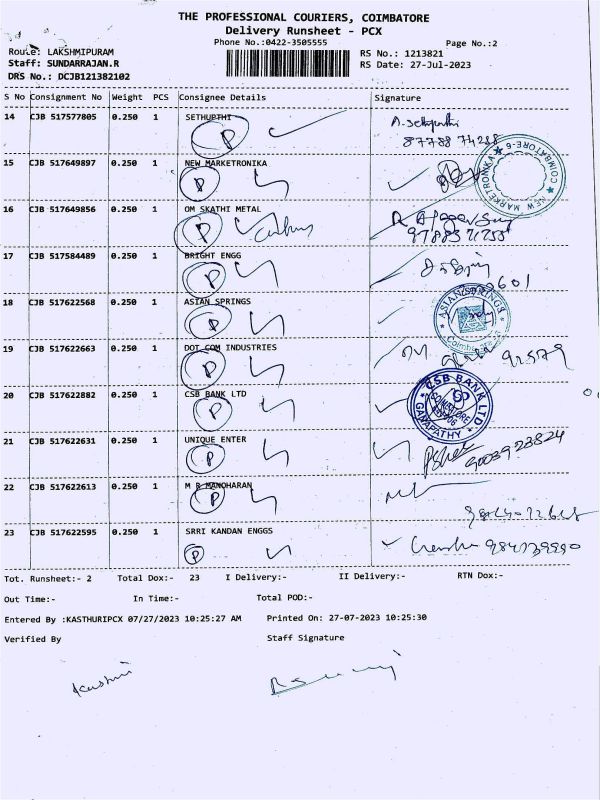 THE PROFESSIONAL COURIERS, COIMBATORE
Delivery Runsheet - PCX
Phone No.:0422-3505555
Page No.:2
Route: LAKSHMIPURAM
RS No.: 1213821
Staff: SUNDARRAJAN.R
RS Date: 27-Jul-2023
DRS No.: DCJB121382102
S No Consignment No Weight PCS Consignee Details Signature
14 CJB 517577805 0.250 1 SETHUPTHI
P
15 CJB 517649897 0.250 1 NEW MARKETRONIKA
P
NEW MARKETRONIKA ★ COIMBATORE-6 ★
16 CJB 517649856 0.250 1 OM SKATHI METAL
P
17 CJB 517584489 0.250 1 BRIGHT ENGG
P
18 CJB 517622568 0.250 1 ASIAN SPRINGS
P
★ ASIAN SPRINGS ★
19 CJB 517622663 0.250 1 DOT COM INDUSTRIES
P
92579
20 CJB 517622882 0.250 1 CSB BANK LTD
P
CSB BANK LTD
COIMBATORE
★ GANAPATHY ★
21 CJB 517622631 0.250 1 UNIQUE ENTER
P
9003923824
22 CJB 517622613 0.250 1 M R MANOHARAN
P
23 CJB 517622595 0.250 1 SRRI KANDAN ENGGS
P
Tot. Runsheet:- 2 Total Dox:- 23 I Delivery:- II Delivery:- RTN Dox:-
Out Time:- In Time:- Total POD:-
Entered By :KASTHURIPCX 07/27/2023 10:25:27 AM Printed On: 27-07-2023 10:25:30
Verified By Staff Signature